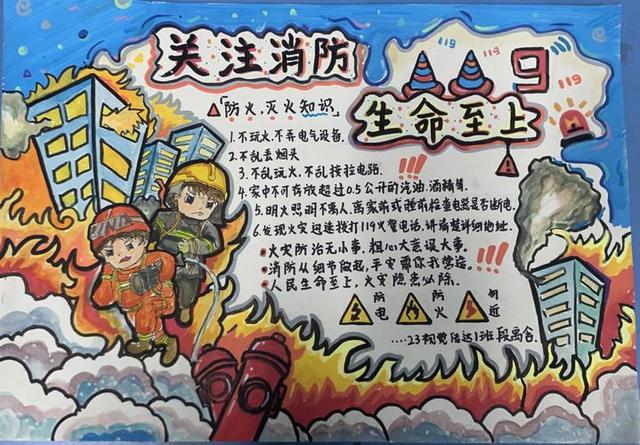 关注消防
119
119
119
生命至上
防火,灭火知识
1.不玩火.不弄电气设备.
2.不乱丢烟头
3.不乱玩火.不乱接拉电路.
4.家中不可存放超过0.5公升的汽油.酒精等.
5.明火照明不离人.离家前或睡前检查电器是否断电.
6.发现火灾迅速拨打119火警电话.讲清楚详细地址.
火灾防治无小事.粗心大意误大事.
消防从细节做起,平安要你我营造.
人民生命至上,火灾隐患必除.
防电
防火
勿近
....23视觉传达1班 段禹含.